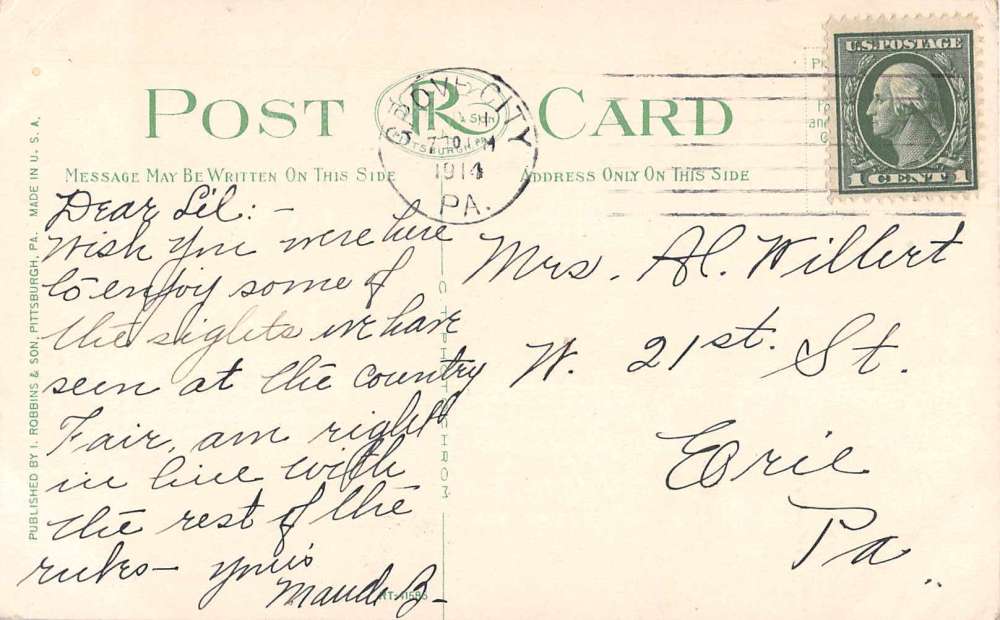 POST CARD
MESSAGE MAY BE WRITTEN ON THIS SIDE
ADDRESS ONLY ON THIS SIDE
GROVE CITY
1914
PA.
PITTSBURGH, PA.
U.S. POSTAGE
1 CENT 1
Dear Lil: -
Wish you were here
to enjoy some of
the sights we have
seen at the country
Fair, am right
in line with
the rest of the
rubes - yours
Maude B -
Mrs. Al. Willert
W. 21st. St.
Erie
Pa
PUBLISHED BY I. ROBBINS & SON, PITTSBURGH, PA. MADE IN U. S. A.